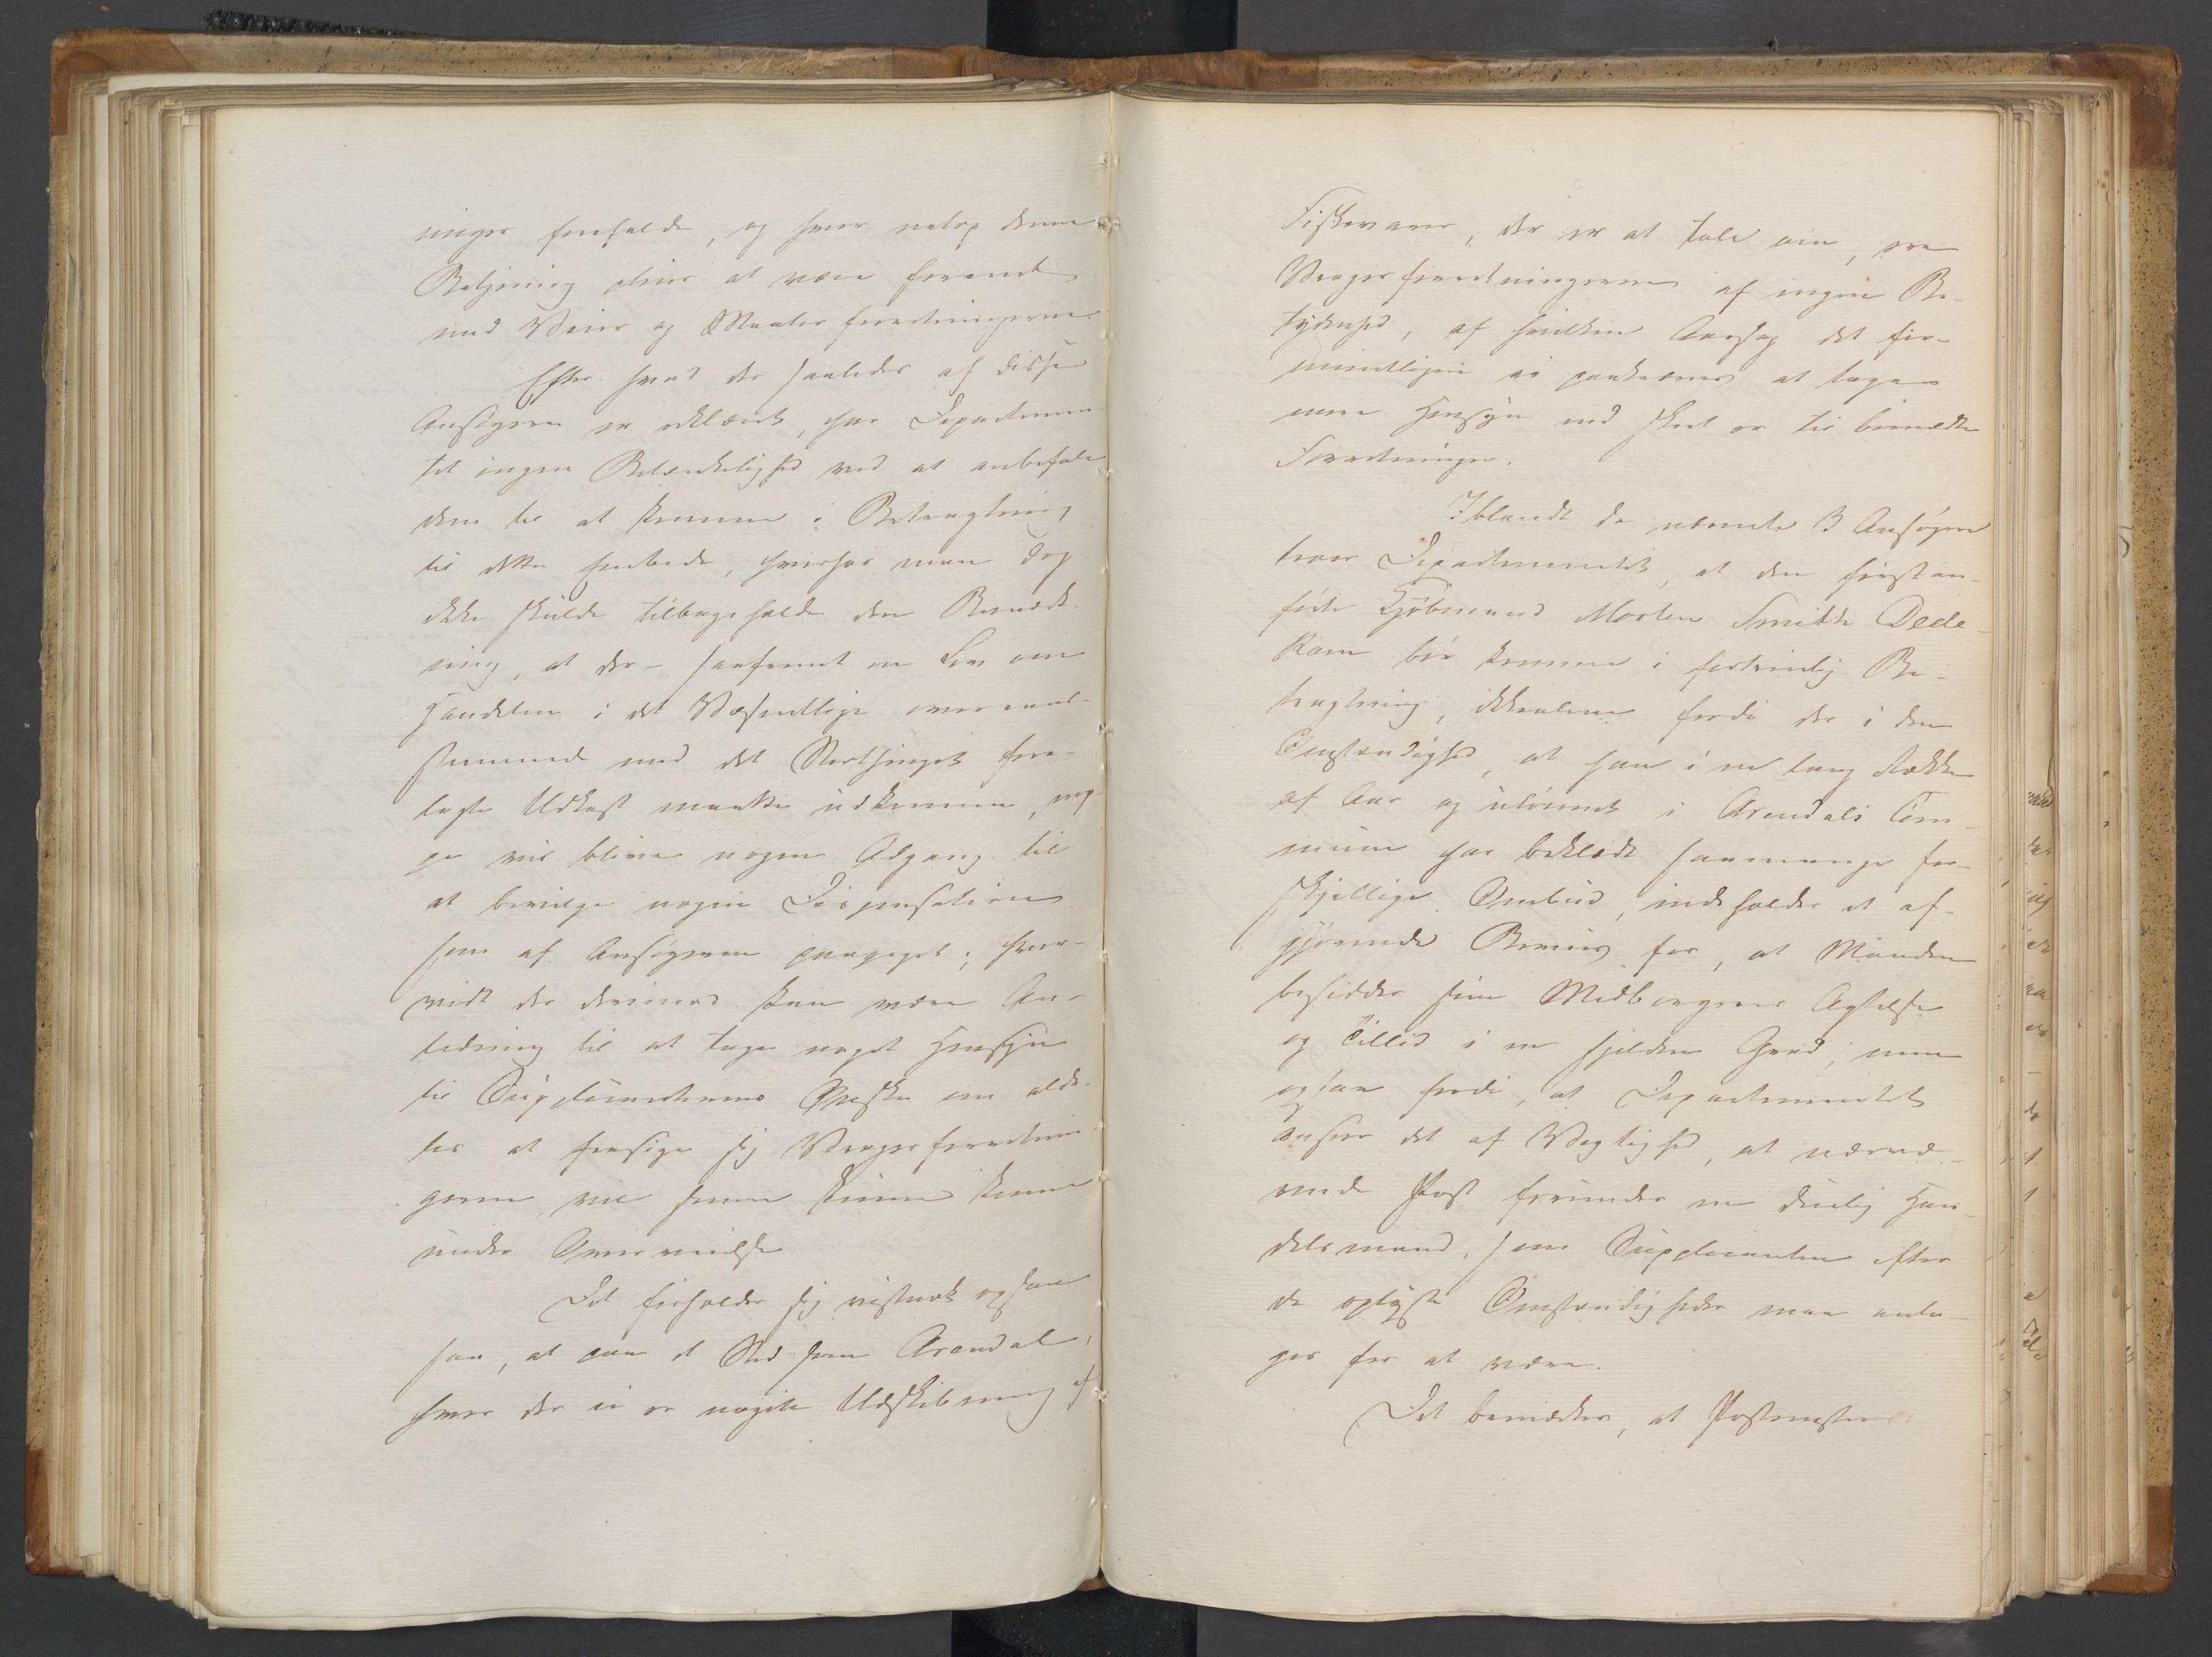 ninger forefalde, og hvor netop denne
Betjening pleier at være forenet
med Veier og Maaler forretningerne.
Efter hvad der saaledes af disse
Ansøgere er erklæret, har Departemen-
tet ingen Betænkelighed ved at anbefale
dem til at komme i Betragtning
til dette Embede, hvorhos man dog
ikke skulde tilbageholde den Bemærk-
ning, at der - saafremt en Lov om
Handelen i det Væsentlige overeens-
stemmende med det Storthinget fore-
lagte Udkast maatte udkomme,
vil blive nogen Adgang til
at bevilge nogen Dispensation
som af Ansøgerne paapeget; hvor-
vidt der derimod kan være An-
ledning til at tage noget Hensyn
til Supplicanternes Ønske om alde-
les at frasige sig Vragerforretnin-
gerne, vil senere kunne komme
under Overveielse
Det forholder sig vistnok ogsaa
saa, at paa et Sted som Arendal,
hvor der ei er nogen Udskibning af
Fiskevarer, der er at tale om, ere
Vragerforretningerne af ingen Be-
tydenhed, af hvilken Aarsag det for-
mentligen ei paakræves at tage
mere Hensyn end skeet er til bemeldte
Forretninger.
Iblandt de nævnte 3 Ansøgere
troer Departementet, at den først an-
førte Kjøbmand Morten Smith Dede-
kam bør komme i fortrinlig Be-
tragtning, ikke alene fordi der i den
Omstændighed, at han i en lang Række
af Aar og ulønnet i Arendals Com-
mune har beklædt saa mange for-
skjellige Ombud, indeholdes et af-
gjørende Beviis for, at Manden
besidder sine Medborgeres Agtelse
og Tillid i en sjelden Grad, men
ogsaa fordi, at Departementet
anseer det af Vigtighed, at nærvæ-
rende Post forundes en duelig Han-
delsmand, som Supplicanten efter
de oplyste Omstændigheder maa anta-
ges for at være.
Det bemærkes, at Postmester